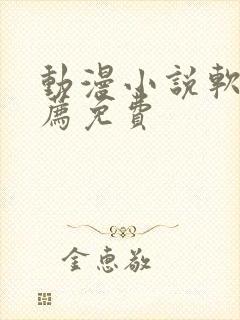 動漫小説軟
薦免費
金惠敬